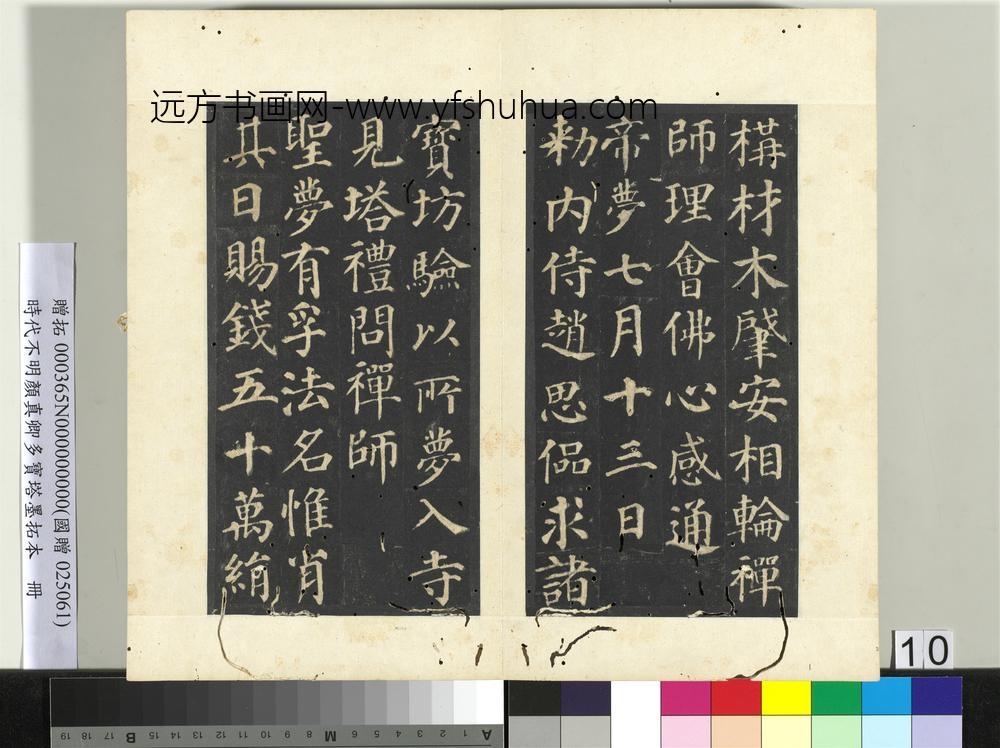 远方书画网-www.yfshuhua.com
構材木肇安相輪禪
師理會佛心感通
帝夢七月十三日
勑内侍趙思偘求諸
寶坊驗以所夢入寺
見塔禮問禪師
聖夢有孚法名惟肖
其日賜錢五十萬絹
贈拓 000365N000000000(國贈 025061)
時代不明顏真卿多寶塔墨拓本 冊
10
A 1 2 3 4 5 6 7 8 M 9 10 11 12 13 14 15 B 17 18 19